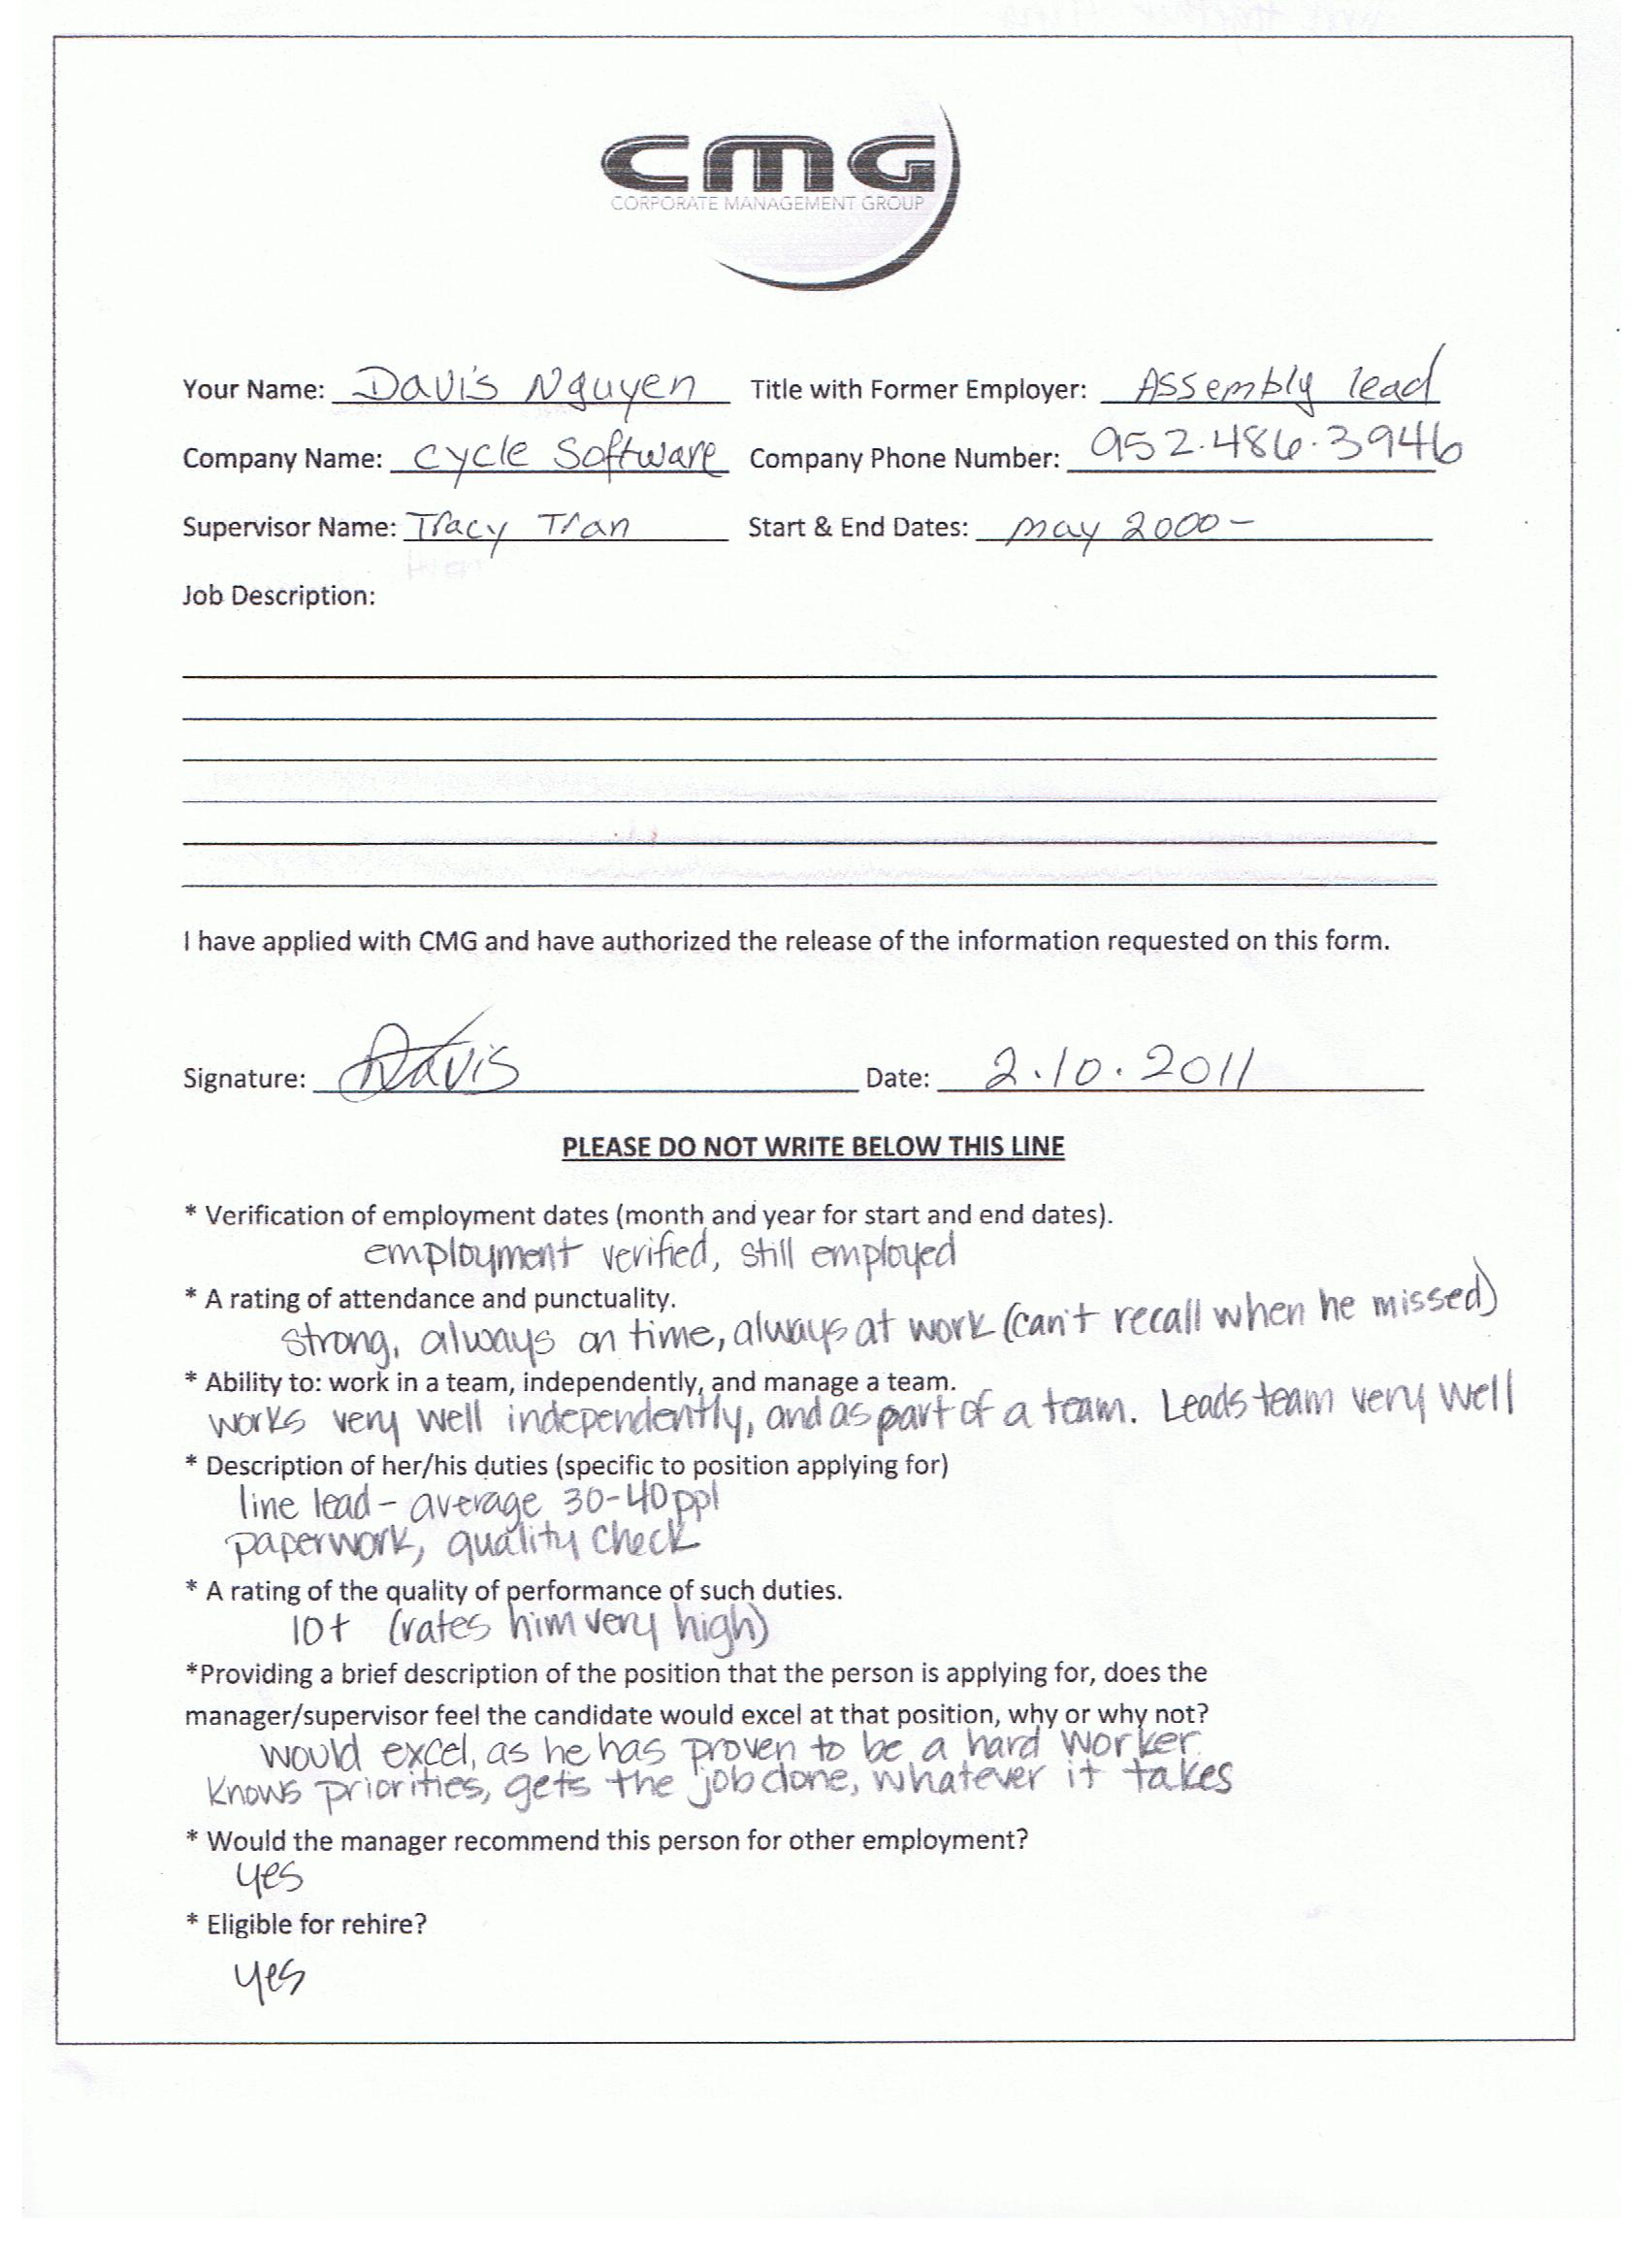 CMG
CORPORATE MANAGEMENT GROUP
Your Name: Davis Nguyen Title with Former Employer: Assembly lead
Company Name: cycle Software Company Phone Number: 952.486.3946
Supervisor Name: Tracy Tran Start & End Dates: may 2000-
Job Description:
I have applied with CMG and have authorized the release of the information requested on this form.
Signature: Davis Date: 2.10.2011
PLEASE DO NOT WRITE BELOW THIS LINE
* Verification of employment dates (month and year for start and end dates).
employment verified, still employed
* A rating of attendance and punctuality.
strong, always on time, always at work (can't recall when he missed)
* Ability to: work in a team, independently, and manage a team.
works very well independently, and as part of a team. Leads team very well
* Description of her/his duties (specific to position applying for)
line lead - average 30-40 ppl
paperwork, quality check
* A rating of the quality of performance of such duties.
10+ (rates him very high)
*Providing a brief description of the position that the person is applying for, does the
manager/supervisor feel the candidate would excel at that position, why or why not?
would excel, as he has proven to be a hard worker.
Knows priorities, gets the job done, whatever it takes
* Would the manager recommend this person for other employment?
yes
* Eligible for rehire?
yes